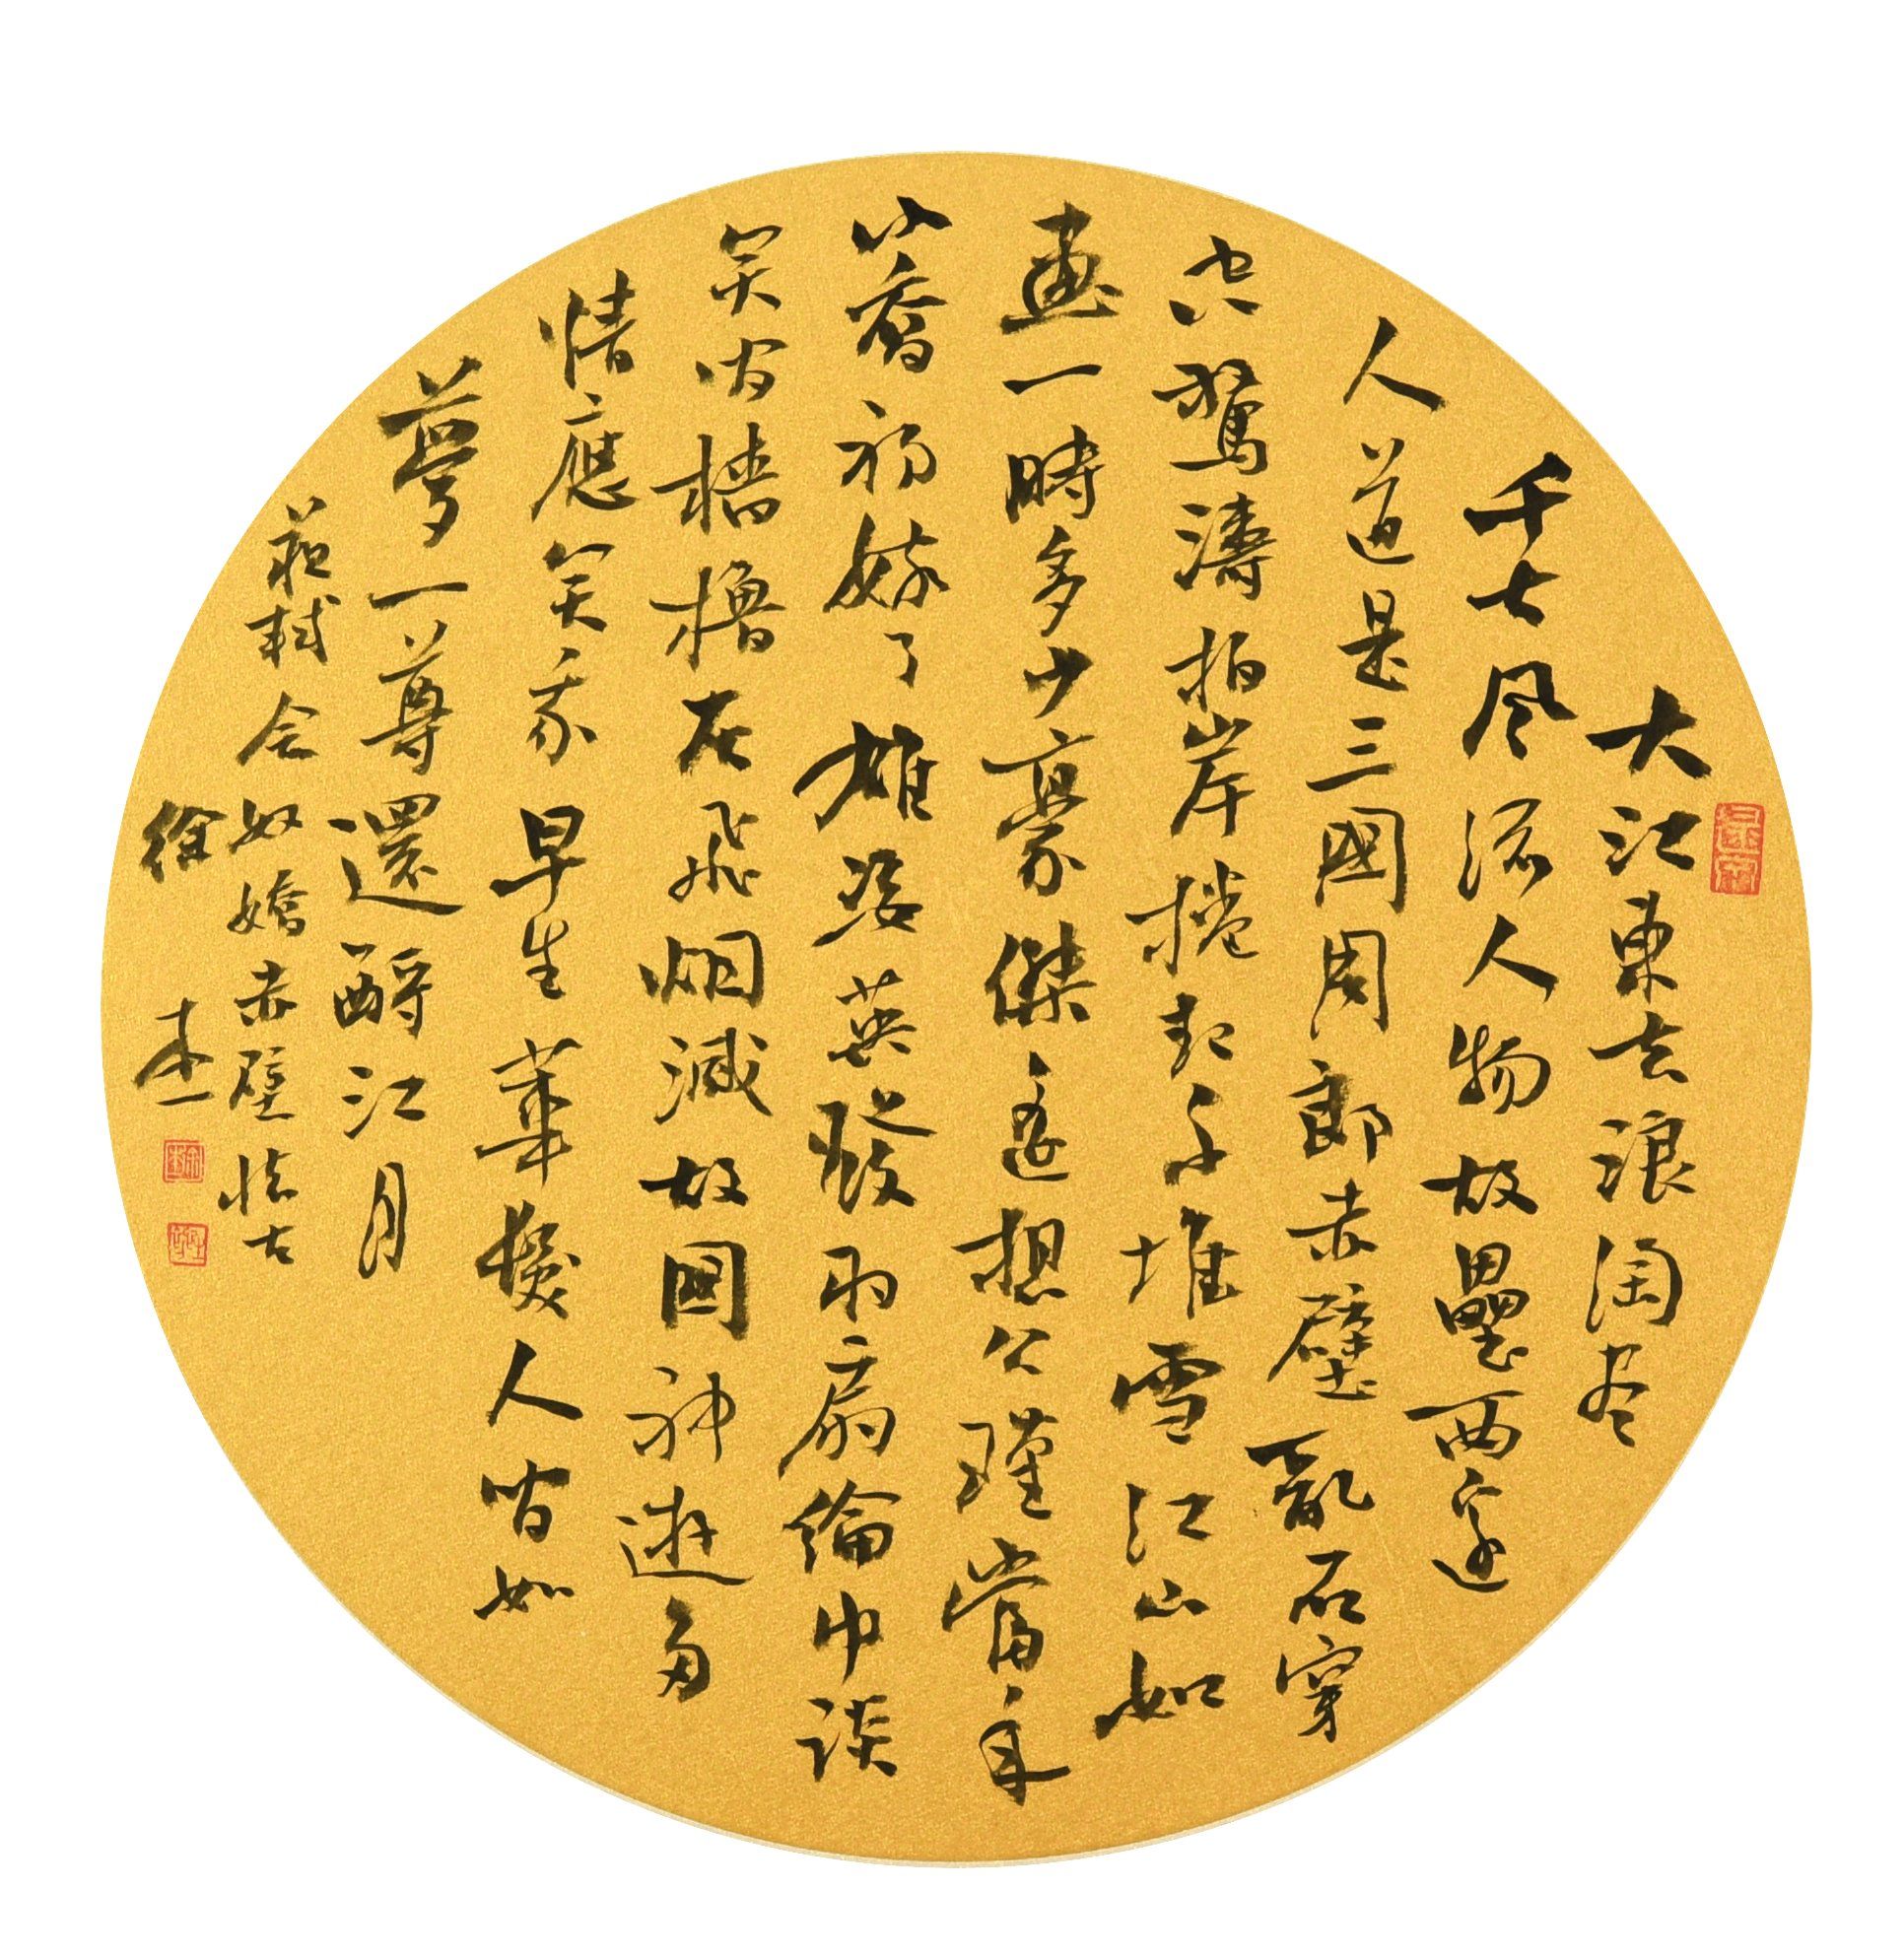 大江東去浪淘尽
千古风流人物故壘西邊
人道是三國周郎赤壁亂石穿
空驚濤拍岸捲起千堆雪江山如
畫一時多少豪傑遙想公瑾當年
小喬初嫁了雄姿英發羽扇綸巾談
笑間檣櫓灰飛烟滅故國神遊多
情應笑我早生華髮人間如
夢一尊還酹江月
蘇軾念奴嬌赤壁懷古
徐杰